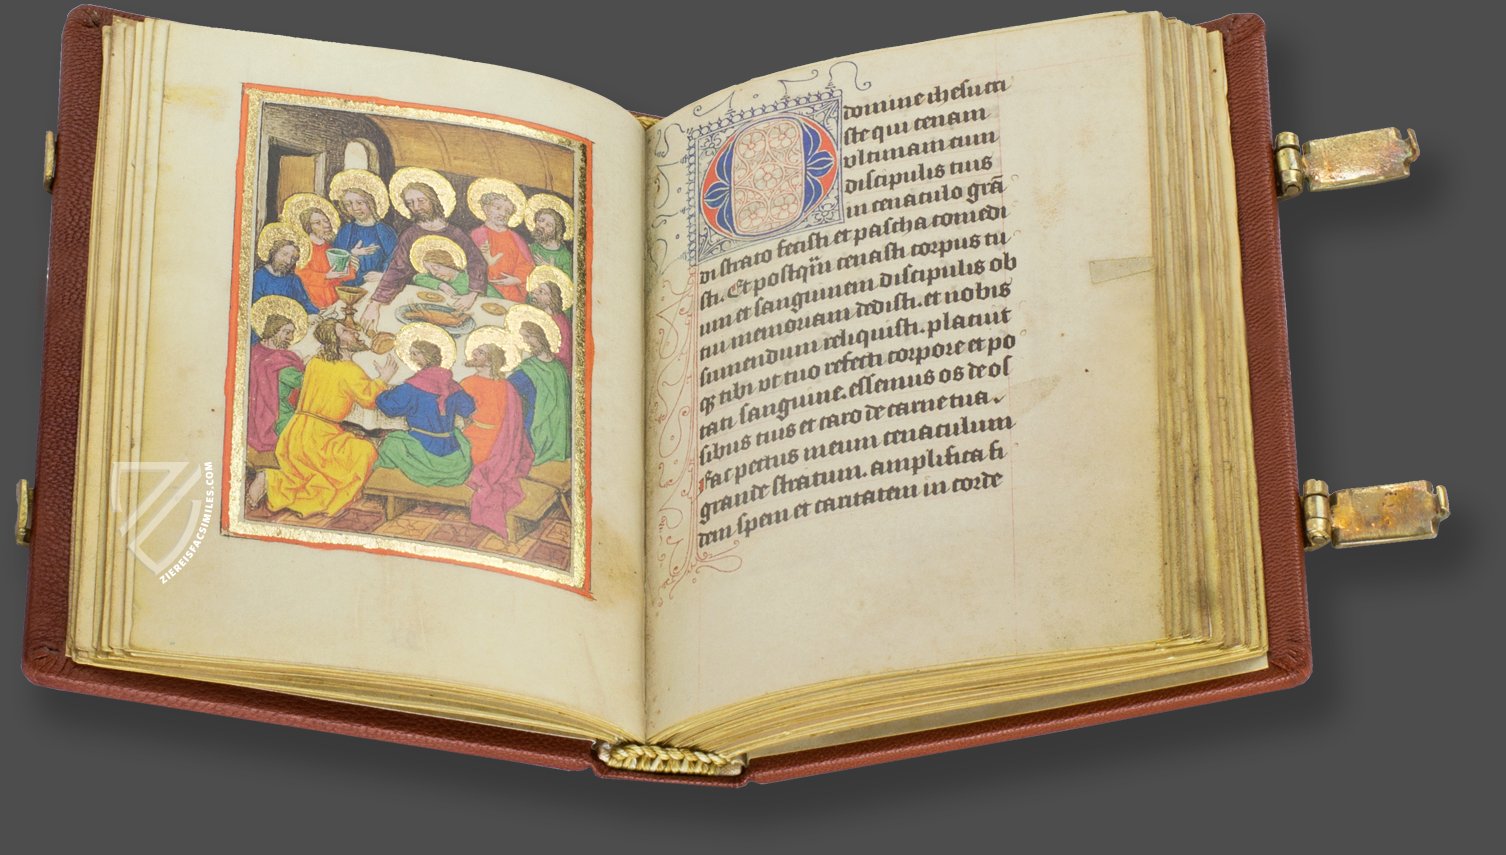 O domine ihesu cri
ste qui cenam
vltimam cum
discipulis tuis
in cenaculo grā
di strato fecisti et pascha comedi
sti. Et postq̄ȝ cenasti corpus tu
um et sanguinem discipulis ob
tui memoriam dedisti. et nobis
sumendum reliquisti. placuit
q̄ tibi vt tuo refecti corpore et po
tati sanguine. essemus os de os
sibus tuis et caro de carne tua.
Fac pectus meum cenaculum
grande stratum. amplifica fi
dem spem et caritatem in corde
ZIEREISFACSIMILES.COM